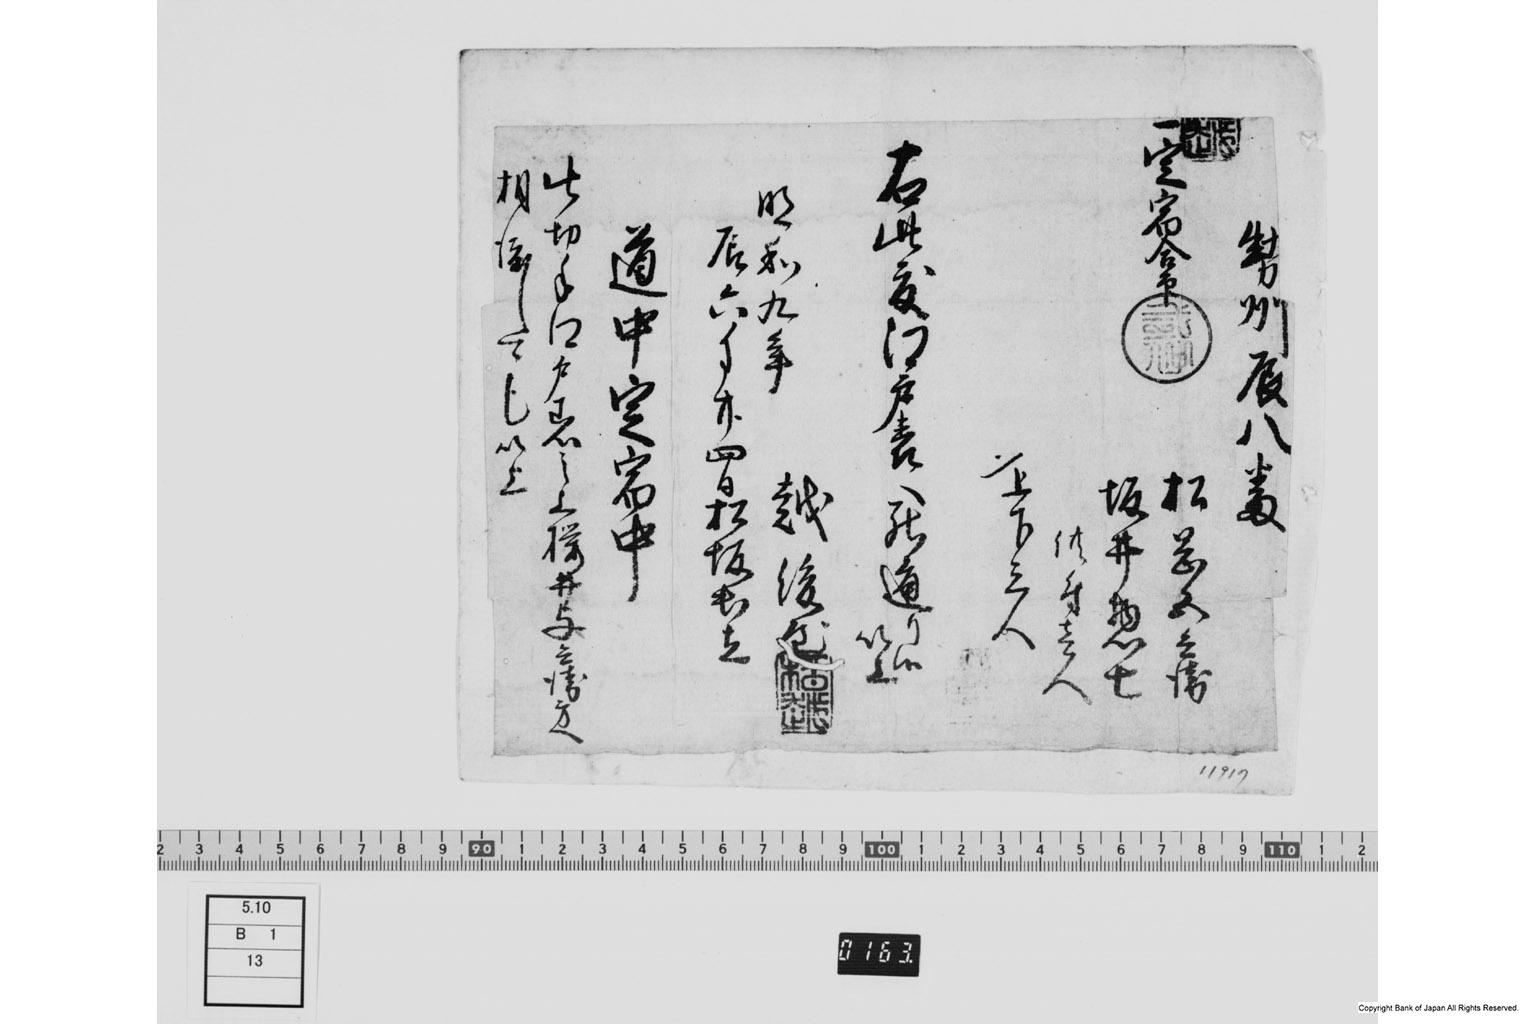 勢州辰八番
一定宿合印
松本又兵衛
坂井惣七
供壱人
〆上下三人
右此度江戸表へ罷通り候
以上
越後屋
明和九年
辰六月廿四日松坂出立
道中定宿中
此切手江戸着之上櫻井与兵衛方へ
相渡し可申候以上
11917
2 3 4 5 6 7 8 9 90 1 2 3 4 5 6 7 8 9 100 1 2 3 4 5 6 7 8 9 110 1 2
5.10
B 1
13
0163.
Copyright Bank of Japan All Rights Reserved.